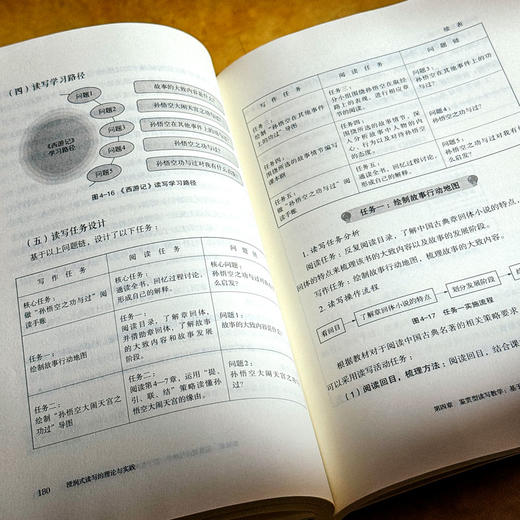 （四）读写学习路径
问题1
故事的大致内容是什么？
问题2
孙悟空大闹天宫之功与过？
问题3
孙悟空在其他事件上的功与过？
《西游记》
学习路径
问题4
孙悟空功与过？
问题5
孙悟空功与过对我有什么启
图4-16 《西游记》读写学习路径
（五）读写任务设计
基于以上问题链，设计了以下任务：
写 作 任 务
阅 读 任 务
问 题 链
核心任务：
做“孙悟空之功与过”阅
读手账
核心任务：
通读全书，回忆过程讨论，
形成自己的解释。
核心问题：
孙悟空功与过对我有什
么启发？
任务一：
绘制故事行动地图
任务一：
阅读目录，了解章回体，
并借助章回体，了解故事
的大致内容和故事发展
阶段。
问题1：
故事的大致内容是
任务二：
绘制“孙悟空大闹天宫之
功过”导图
任务二：
阅读第4—7章，运用“提、
引、联、结”策略读懂孙
悟空大闹天宫的缘由。
问题2：
孙悟空大闹天宫之
过？
180 浸润式读写的理论与实践
续 表
写 作 任 务
阅 读 任 务
问 题 链
任务三：
绘制“孙悟空在其他事件
上的功与过”导图
任务三：
分小组围绕孙悟空在取经
路上的表现，进行相应章
节的阅读。
问题3：
孙悟空在其他事件上的功
与过？
任务四：
围绕所选的故事情节编写
课本剧
任务四：
围绕所选的故事情节，深
入分析故事中人物的内
心、行为以及对待孙悟空
的态度。
问题4：
孙悟空功与过？
任务五：
做“孙悟空之功与过”阅
读手账
任务五：
通读全书，回忆过程讨论，
形成自己的解释。
问题5：
孙悟空功与过对我有什
么启发？
任务一：绘制故事行动地图
1. 读写任务分析
阅读任务：反复阅读目录，了解中国古典章回体小说的特点，
回体的特点来梳理该书的大致内容以及故事的发展阶段。
写作任务：绘制故事行动地图，梳理故事的大致内容。
2. 读写操作流程
看回目
了解章回体小说的特点
划分发展阶段
图4-17 任务一实施流程
根据教材对于阅读中国古典名著的相关策略要求
可以采用读写活动任务：
（1）阅读回目，梳理方法：阅读回目，结合课
第四章 鉴赏型读写教学：基于